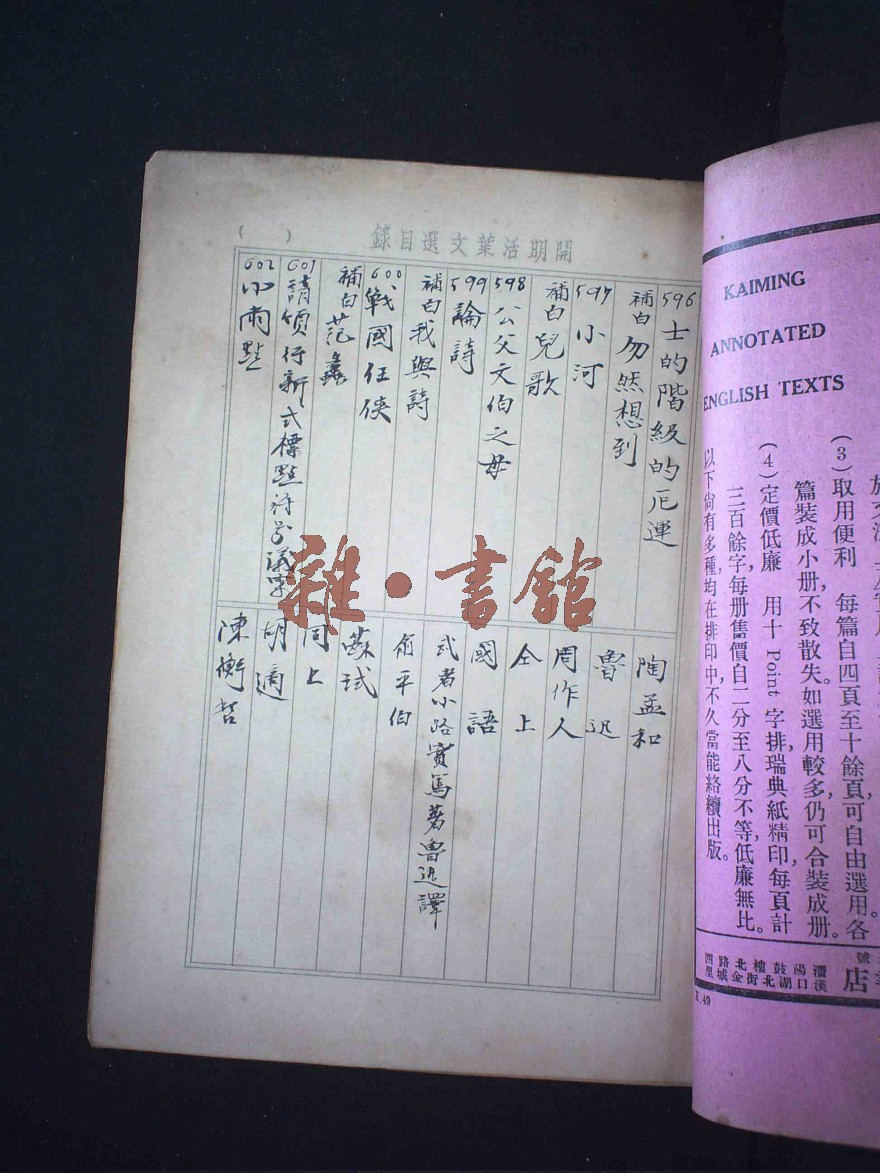 開明活葉文選目錄
( )
596 士的階級的厄運 陶孟和
補白 勿然想到 魯迅
597 小河 周作人
補白 兒歌 仝上
598 公父文伯之母 國語
599 論詩 武者小路實篤著魯迅譯
補白 我與詩 俞平伯
600 戰國任俠 蘇軾
補白 范蠡 同上
601 請頒行新式標點符号議案 胡適
602 小雨點 陳衡哲
雜·書館
KAIMING
ANNOTATED
ENGLISH TEXTS
(3)取用便利 每篇自四頁至十餘頁可自由選用各
篇裝成小册,不致散失。如選用較多,仍可合裝成册。
(4)定價低廉 用十 Point 字排,瑞典紙精印,每頁計
三百餘字,每册售價自二分至八分不等,低廉無比。
以下尚有多種,均在排印中,不久當能絡續出版。
號
店
瀋陽鼓樓北路四
漢口湖北街金城里
K.49